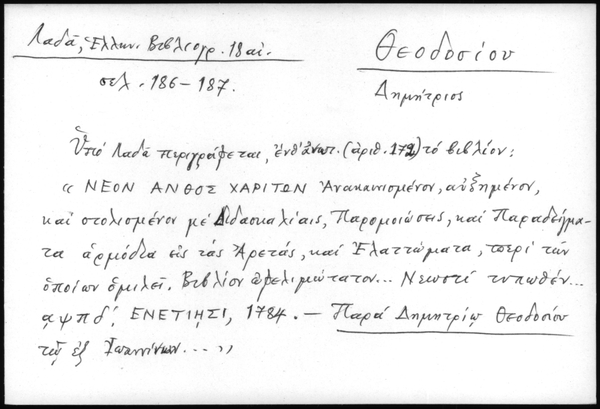 Λαδᾶ, Ἑλλην. Βιβλιογρ. 18 αἰ.
σελ. 186-187.
Θεοδοσίου
Δημήτριος
Ὑπό Λαδᾶ περιγράφεται, ἔνθ' ἀνωτ. (ἀριθ. 172) τό βιβλίον:
« ΝΕΟΝ ΑΝΘΟΣ ΧΑΡΙΤΩΝ Ἀνακαινισμένον, αὐξημένον,
καί στολισμένον μέ Διδασκαλίαις, Παρομοιώσεις, καί Παραδείγμα-
τα ἁρμόδια εἰς τάς Ἀρετάς, καί Ἐλαττώματα, περί τῶν
ὁποίων ὁμιλεῖ. Βιβλίον ὠφελιμώτατον... Νεωστί τυπωθέν...
͵αψπδ΄, ΕΝΕΤΙΗΣΙ, 1784. — Παρά Δημητρίῳ Θεοδοσίου
τῷ ἐξ Ἰωαννίνων... »